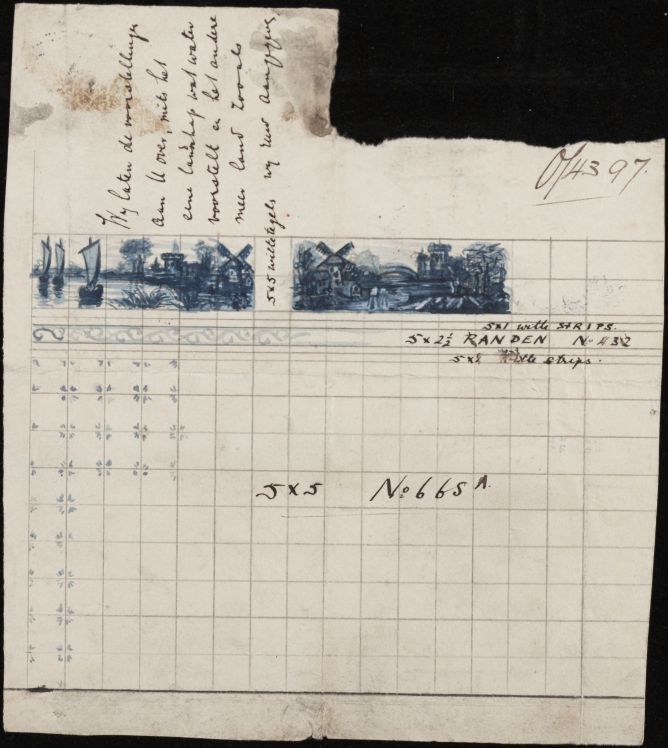 Wij laten de voorstellingen
aan U over, mits het
eene landschap wat water
voorstelt en het andere
meer land zooals
wij deze aangegeven
5x5 witte tegels
O/4397.
5x1 witte STRIPS.
5x2½ RANDEN No 432
5x1 witte strips.
5x5 No 665 A.